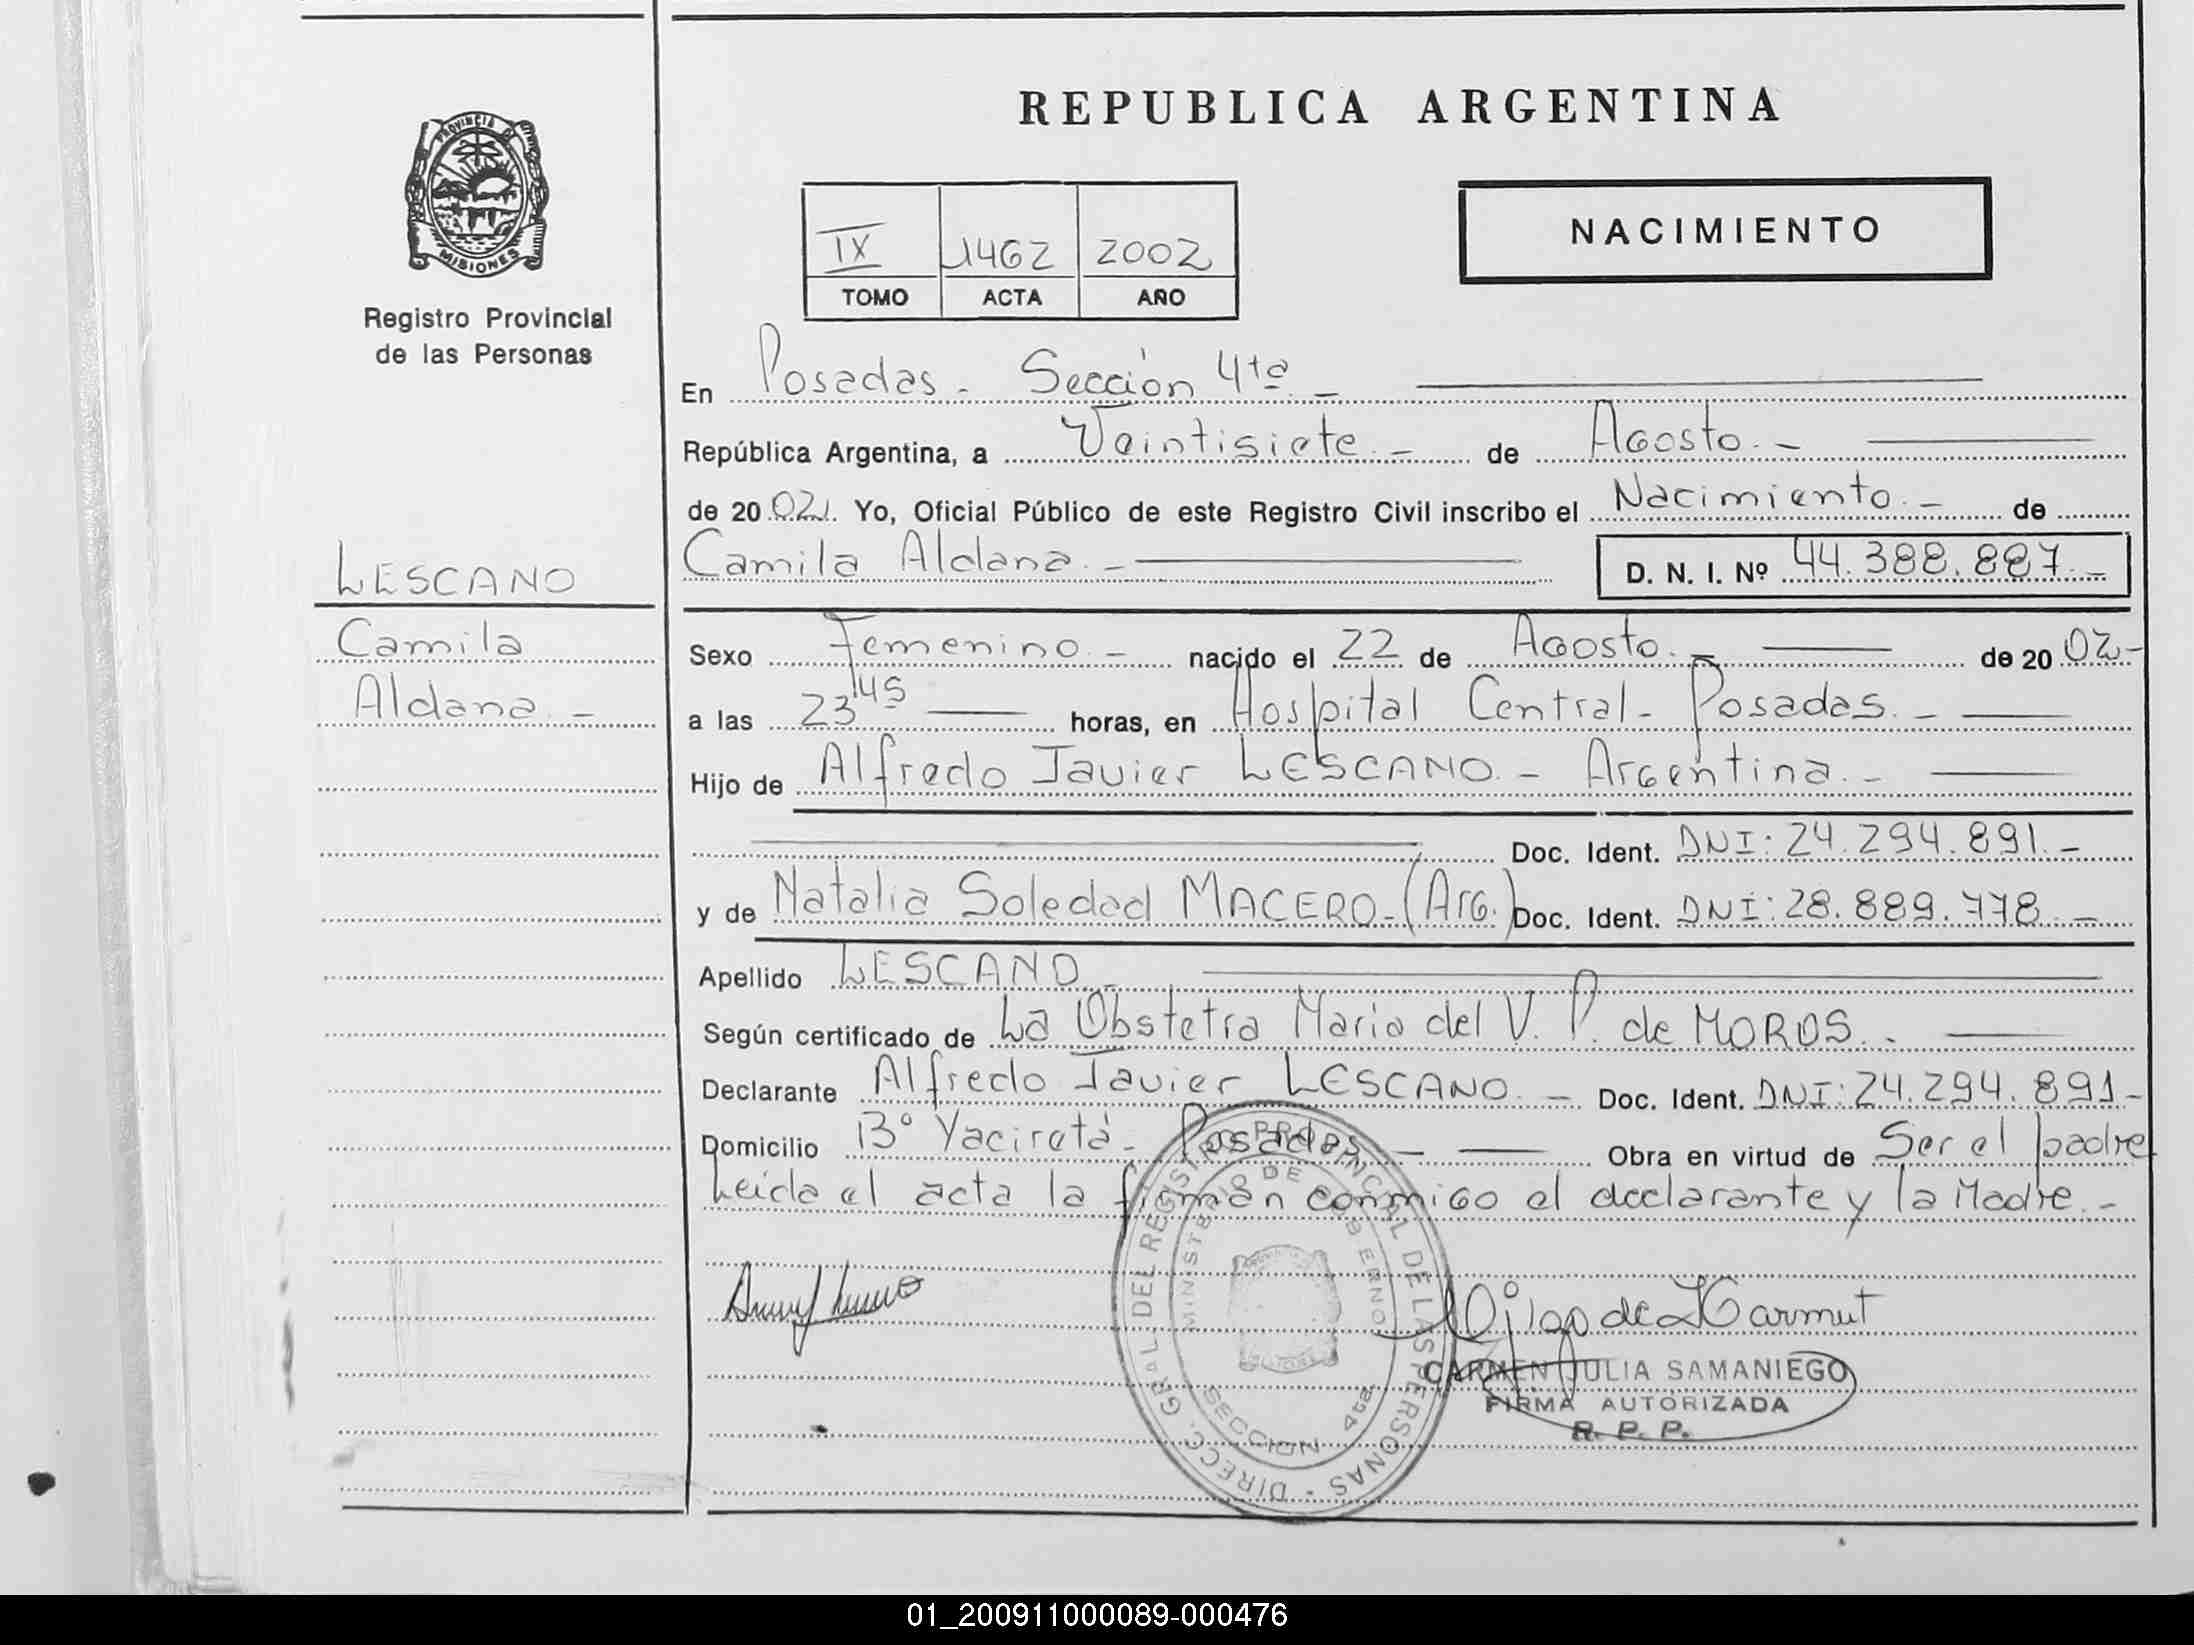 REPUBLICA ARGENTINA
PROVINCIA DE
MISIONES
Registro Provincial
de las Personas
IX 1462 2002
TOMO ACTA AÑO
NACIMIENTO
En Posadas - Sección 4ta -
República Argentina, a Veintisiete.- de Agosto.-
de 2002. Yo, Oficial Público de este Registro Civil inscribo el Nacimiento.- de
Camila Aldana.- D. N. I. Nº 44.388.887.-
LESCANO
Camila
Aldana.-
Sexo Femenino.- nacido el 22 de Agosto.- de 2002.-
a las 23 45 horas, en Hospital Central - Posadas.-
Hijo de Alfredo Javier LESCANO.- Argentina.-
Doc. Ident. DNI: 24.294.891.-
y de Natalia Soledad MACERO.- (Arg.) Doc. Ident. DNI: 28.889.778.-
Apellido LESCANO.-
Según certificado de La Obstetra Maria del V. P. de MOROS.
Declarante Alfredo Javier LESCANO.- Doc. Ident. DNI: 24.294.891-
Domicilio Bº Yacireta - Posadas.- Obra en virtud de Ser el padre
Leida el acta la firman conmigo el declarante y la Madre.-
DIRECC. GRAL. DEL REGISTRO PROVINCIAL DE LAS PERSONAS -
MINISTERIO DE GOBIERNO
SECCION 4ta.
CARMEN JULIA SAMANIEGO
FIRMA AUTORIZADA
R. P. P.
01_200911000089-000476